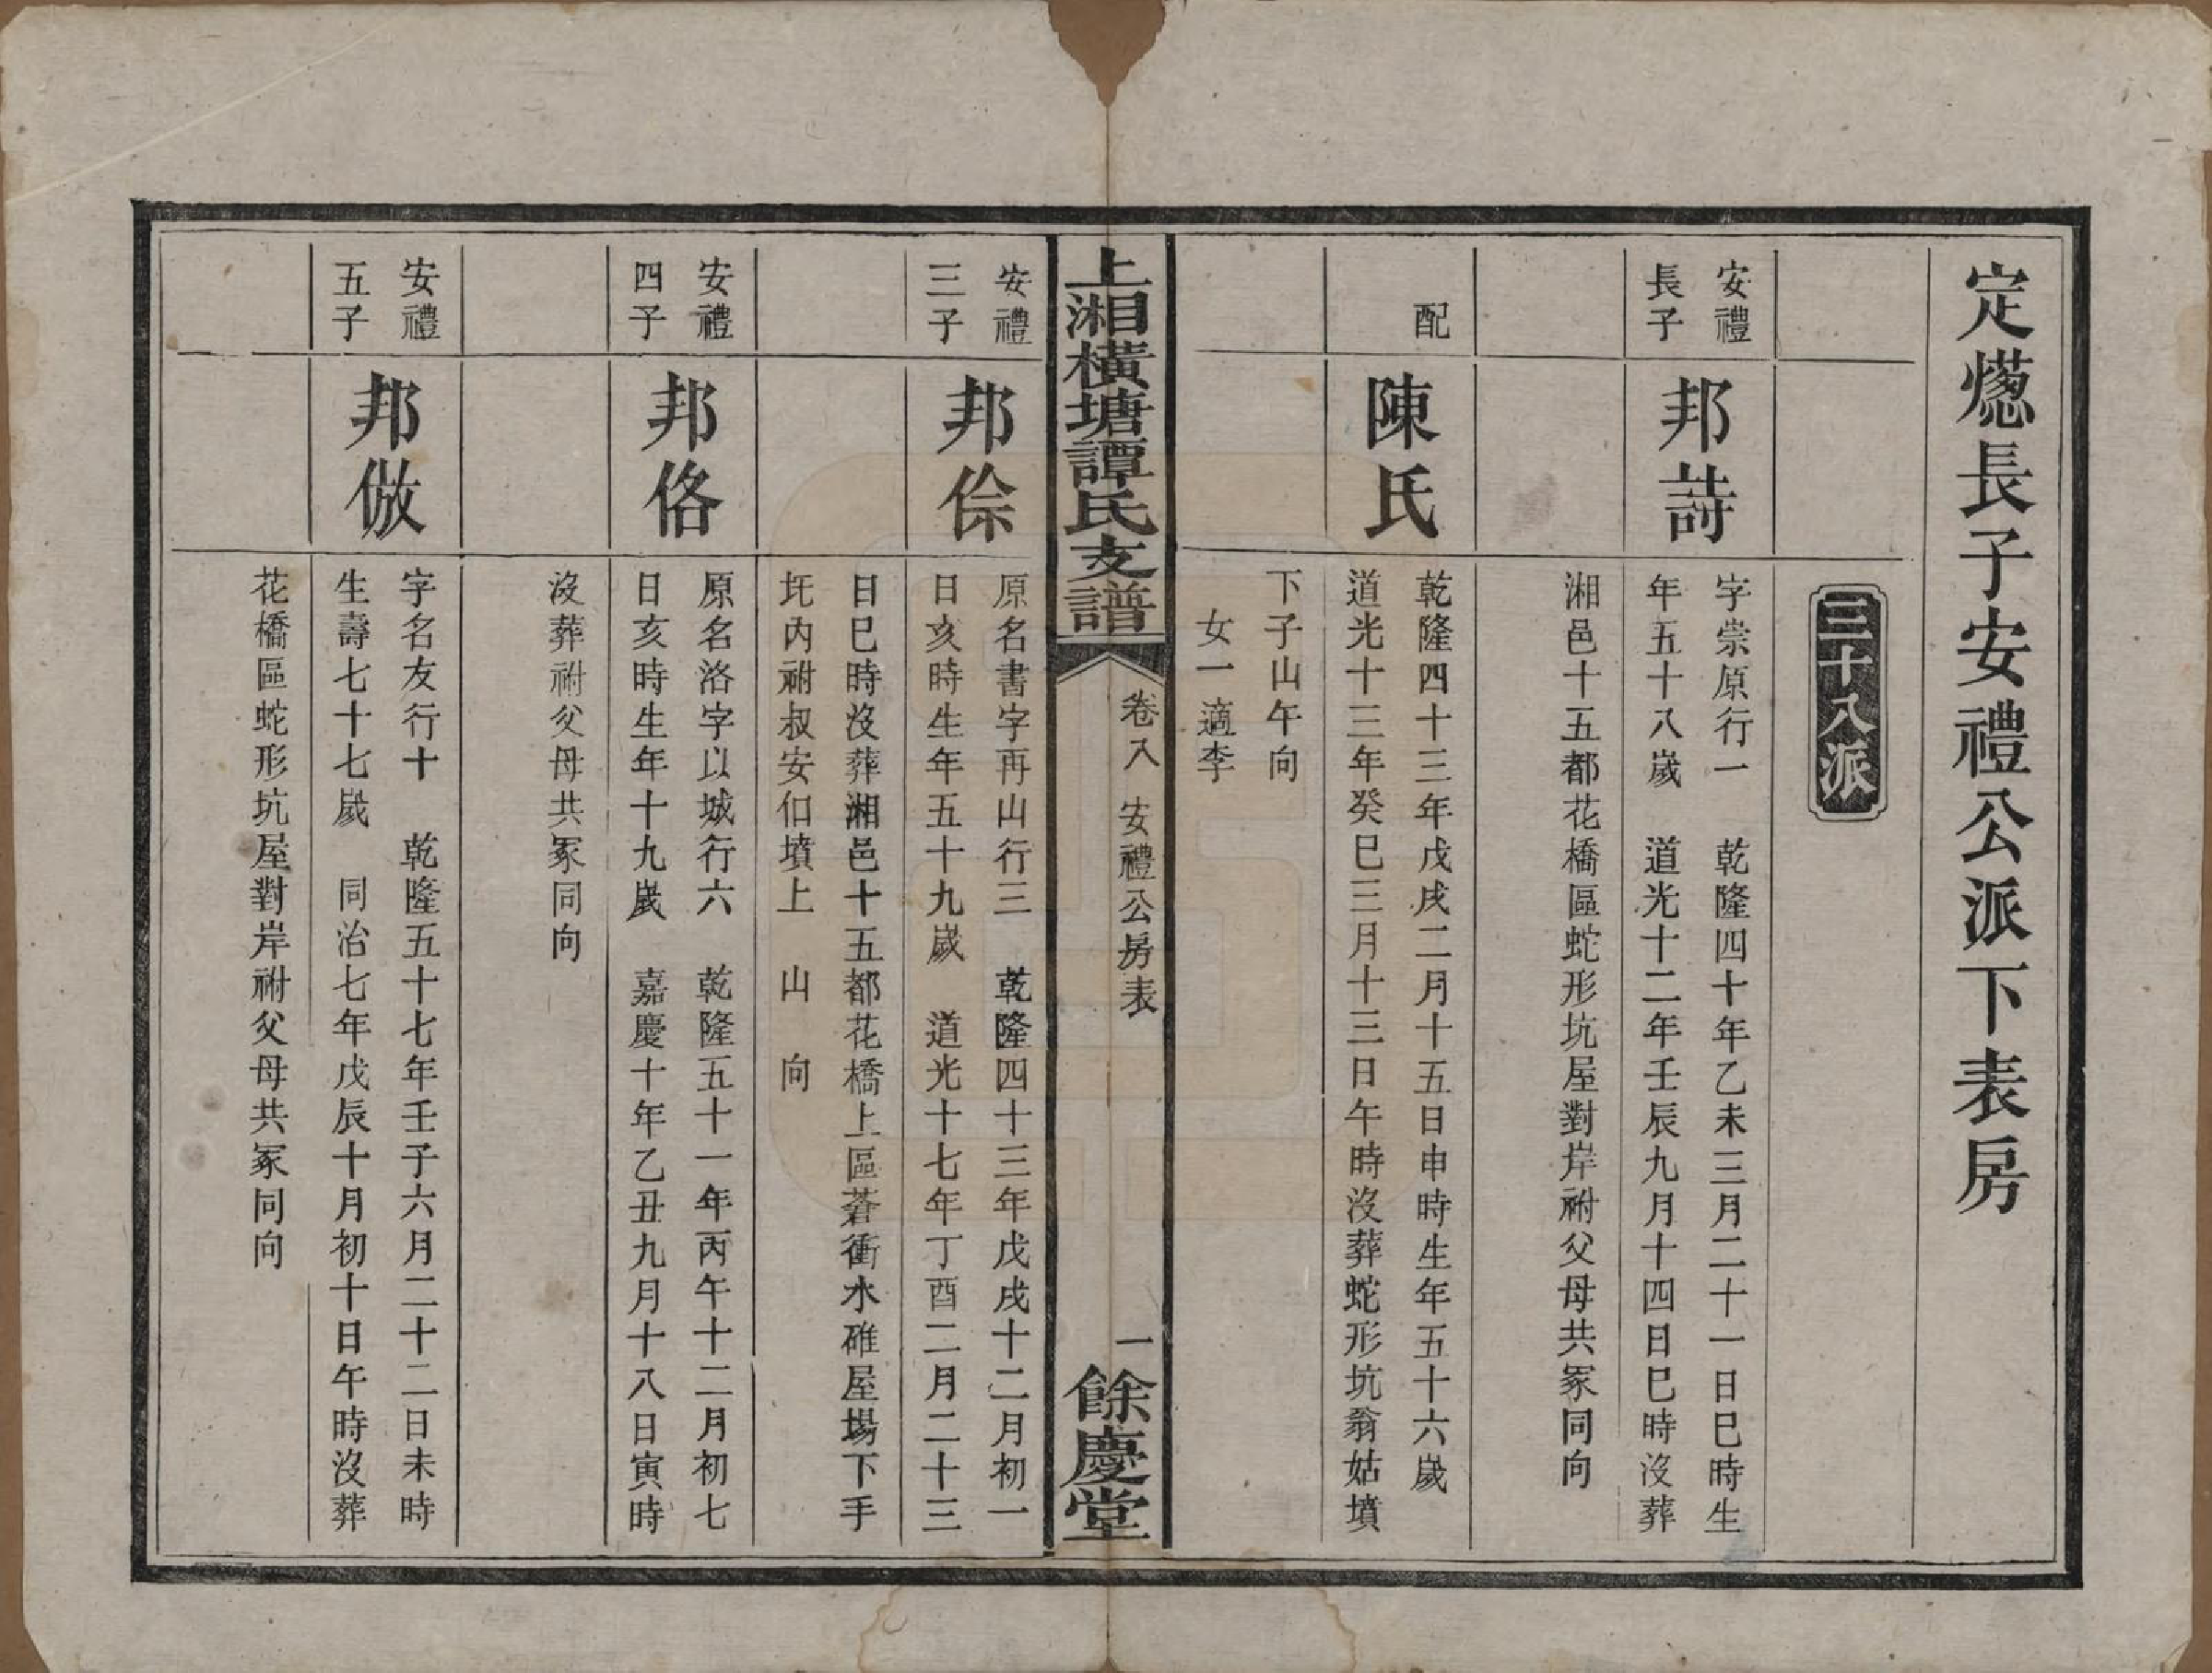 定㷓長子安禮公派下表房
三十八派
安禮
長子
邦詩
字崇原行一　乾隆四十年乙未三月二十一日巳時生
年五十八歲　道光十二年壬辰九月十四日巳時沒葬
湘邑十五都花橋區蛇形坑屋對岸祔父母共冢同向
配
陳氏
乾隆四十三年戊戌二月十五日申時生年五十六歲
道光十三年癸巳三月十三日午時沒葬蛇形坑翁姑墳
下子山午向
女一適李
上湘橫塘譚氏支譜
卷八　安禮公房表
一
餘慶堂
安禮
三子
邦㑱
原名書字再山行三　乾隆四十三年戊戌十二月初一
日亥時生年五十九歲　道光十七年丁酉二月二十三
日巳時沒葬湘邑十五都花橋上區蒼衝水碓屋場下手
圫內祔叔安伯墳上　山　向
安禮
四子
邦佫
原名洛字以城行六　乾隆五十一年丙午十二月初七
日亥時生年十九歲　嘉慶十年乙丑九月十八日寅時
沒葬祔父母共冢同向
安禮
五子
邦倣
字名友行十　乾隆五十七年壬子六月二十二日未時
生壽七十七歲　同治七年戊辰十月初十日午時沒葬
花橋區蛇形坑屋對岸祔父母共冢同向